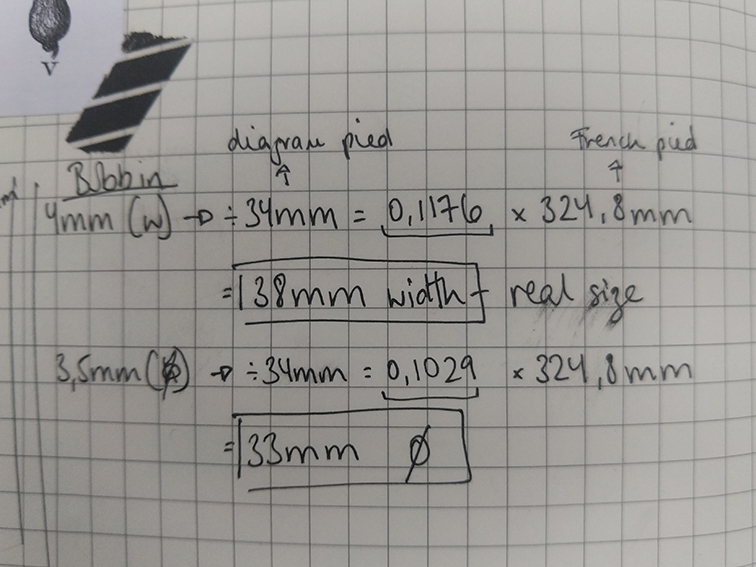 V
diagram pied French pied
Bobbin
4mm (W) → ÷34mm = 0,1176 × 324,8mm
= 38mm width → real size
3,5mm (ø) → ÷34mm = 0,1029 × 324,8mm
= 33mm ø